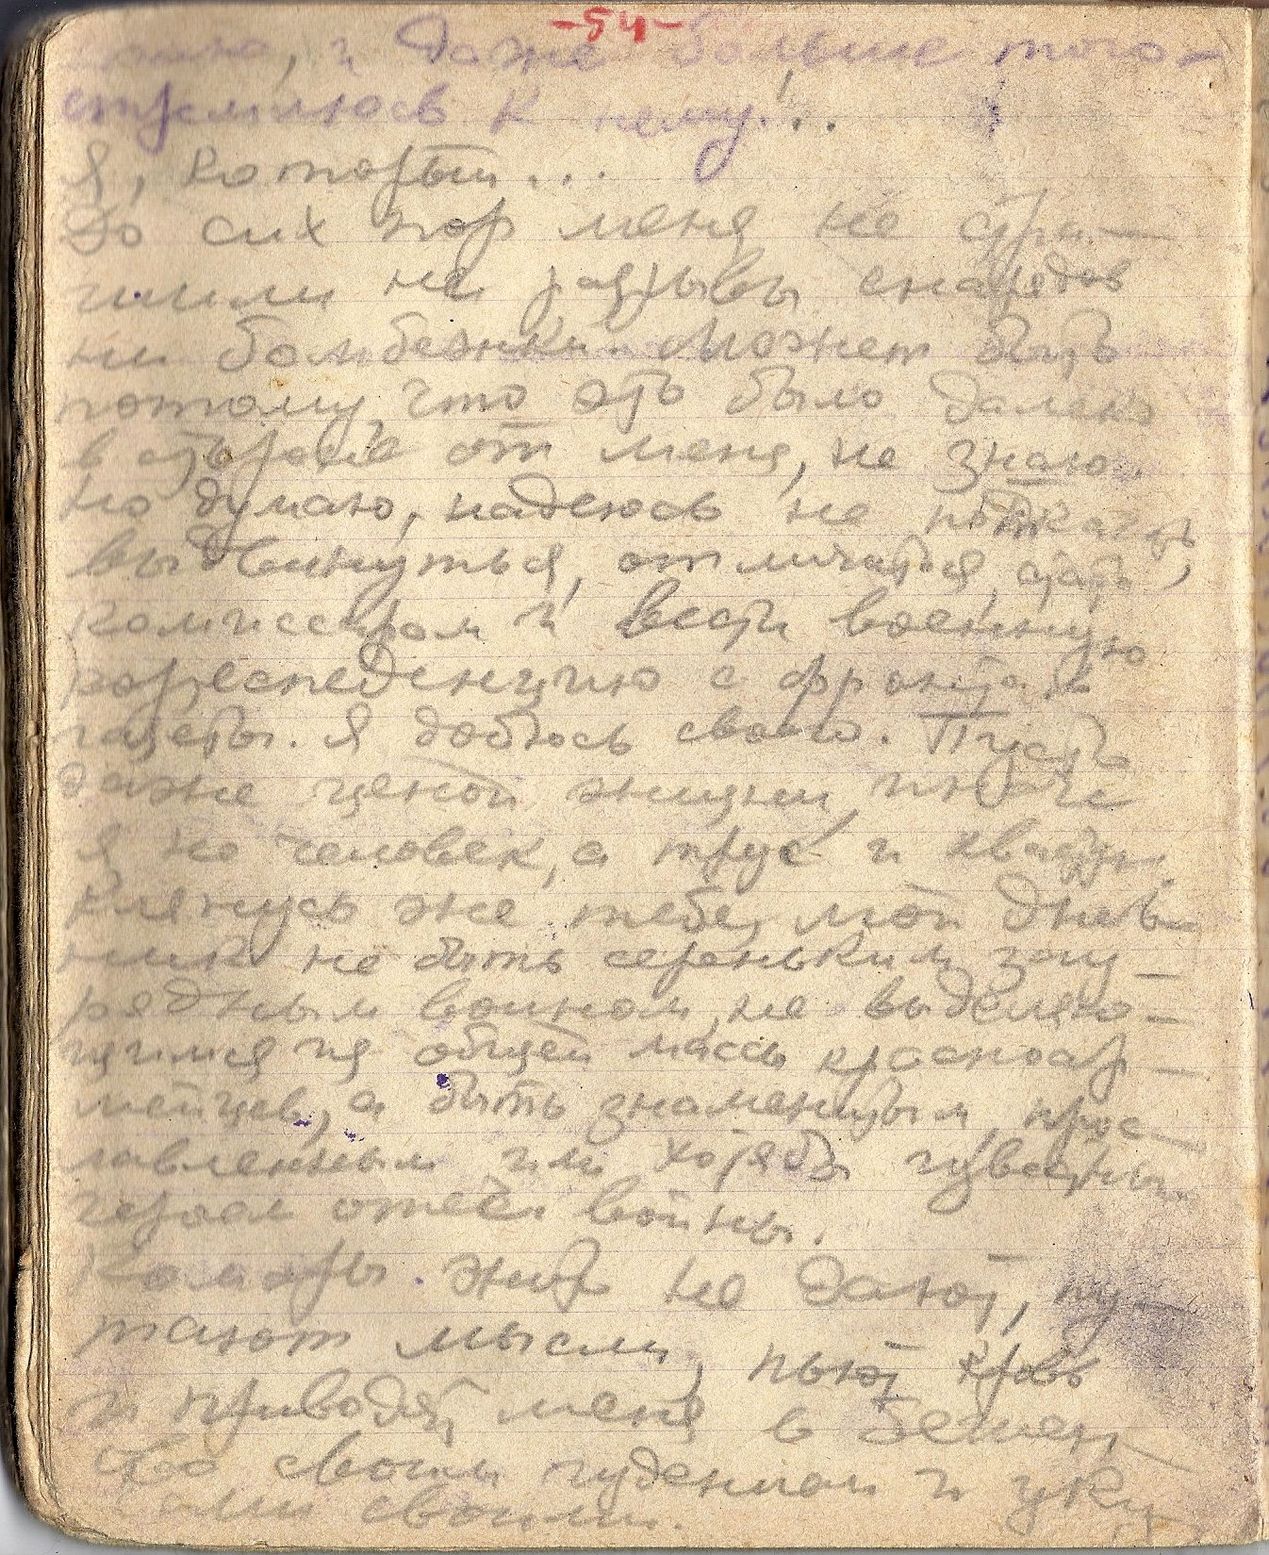 -54-
, и даже больше того -
стремлюсь к нему!..
Я, который...
До сих пор меня не стра-
шили не разрывы снарядов
ни бомбежки. Может быть
потому, что это было далеко
в стороне от меня, не знаю.
Но думаю, надеюсь не
выдвинуться, отличаться, стать
комиссаром и вести военную
кореспеденцию с фронта в
газеты. Я добьюсь своего. Пусть
даже ценой жизни, иначе
я не человек, а трус и хвастун.
Клянусь же тебе, мой днев-
ник не быть сереньким зау-
редным воином, не выделяю-
щимся из общей массы красноар-
мейцев, а быть знаменитым, прос-
лавленным или хотя бы известным
героем отеч. войны.
Комары жить не дают, пу-
тают мысли, пьют кровь
и приводят меня в бешен-
ство своим гуденьем и уку-
сами своими.